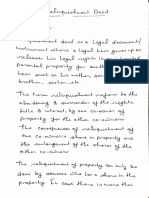 Relinquishment Deed
Relinquishment deed is a legal document/
instrument where a legal heir gives up or
releases his legal rights in inherited
parental property for another legal
heir such as his mother, son
brother or sister etc.
The term relinquishment refers to the
abandoning & surrender of the rights
title & interest, by one co-owner
in favour of the other co-owners.
The consequences of relinquishment of
one co-owner's share in the property
are the enlargement of the shares of the
other co-owners
The relinquishment of property can only be
done by someone who has a share in the
property. In case there is more than